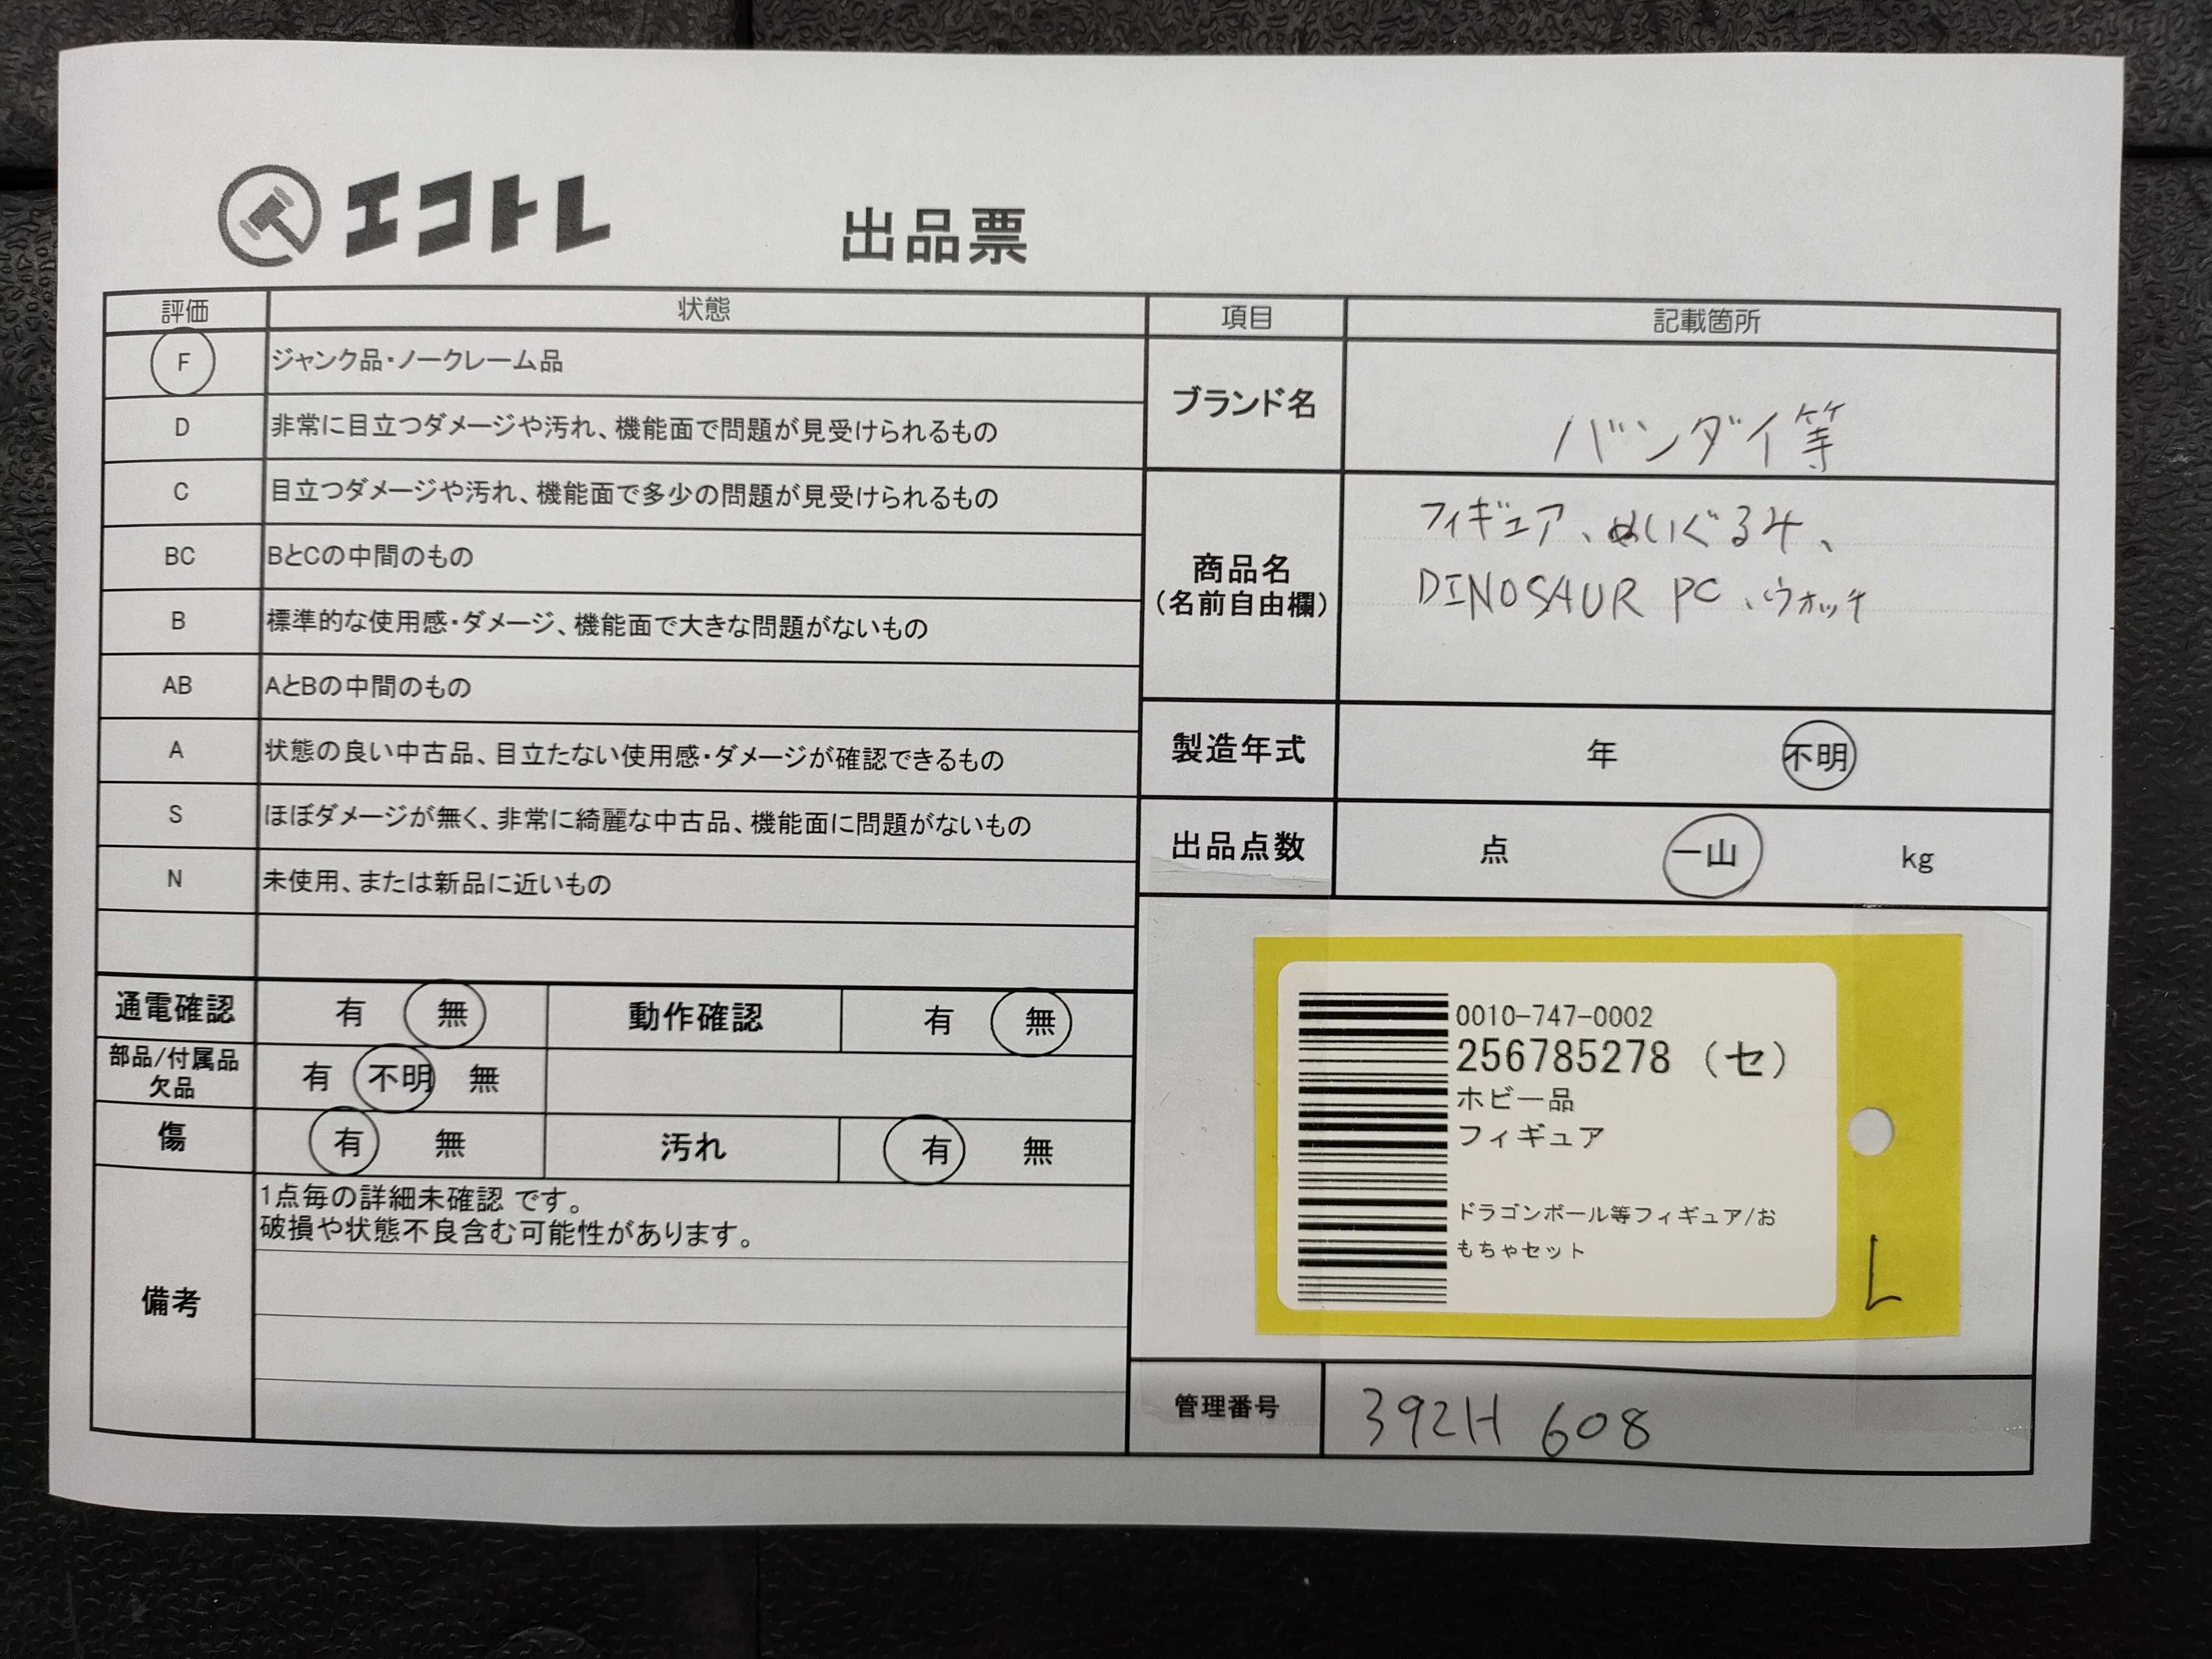 エコトレ
出品票
評価 状態
F ジャンク品・ノークレーム品
D 非常に目立つダメージや汚れ、機能面で問題が見受けられるもの
C 目立つダメージや汚れ、機能面で多少の問題が見受けられるもの
BC BとCの中間のもの
B 標準的な使用感・ダメージ、機能面で大きな問題がないもの
AB AとBの中間のもの
A 状態の良い中古品、目立たない使用感・ダメージが確認できるもの
S ほぼダメージが無く、非常に綺麗な中古品、機能面に問題がないもの
N 未使用、または新品に近いもの
通電確認 有 無 動作確認 有 無
部品/付属品
欠品 有 不明 無
傷 有 無 汚れ 有 無
備考
1点毎の詳細未確認 です。
破損や状態不良含む可能性があります。
項目 記載箇所
ブランド名 バンダイ等
商品名
(名前自由欄)
フィギュア、ぬいぐるみ、
DINOSAUR PC、ウォッチ
製造年式 年 不明
出品点数 点 一山 kg
0010-747-0002
256785278 (セ)
ホビー品
フィギュア
ドラゴンボール等フィギュア/お
もちゃセット
L
管理番号 392H 608